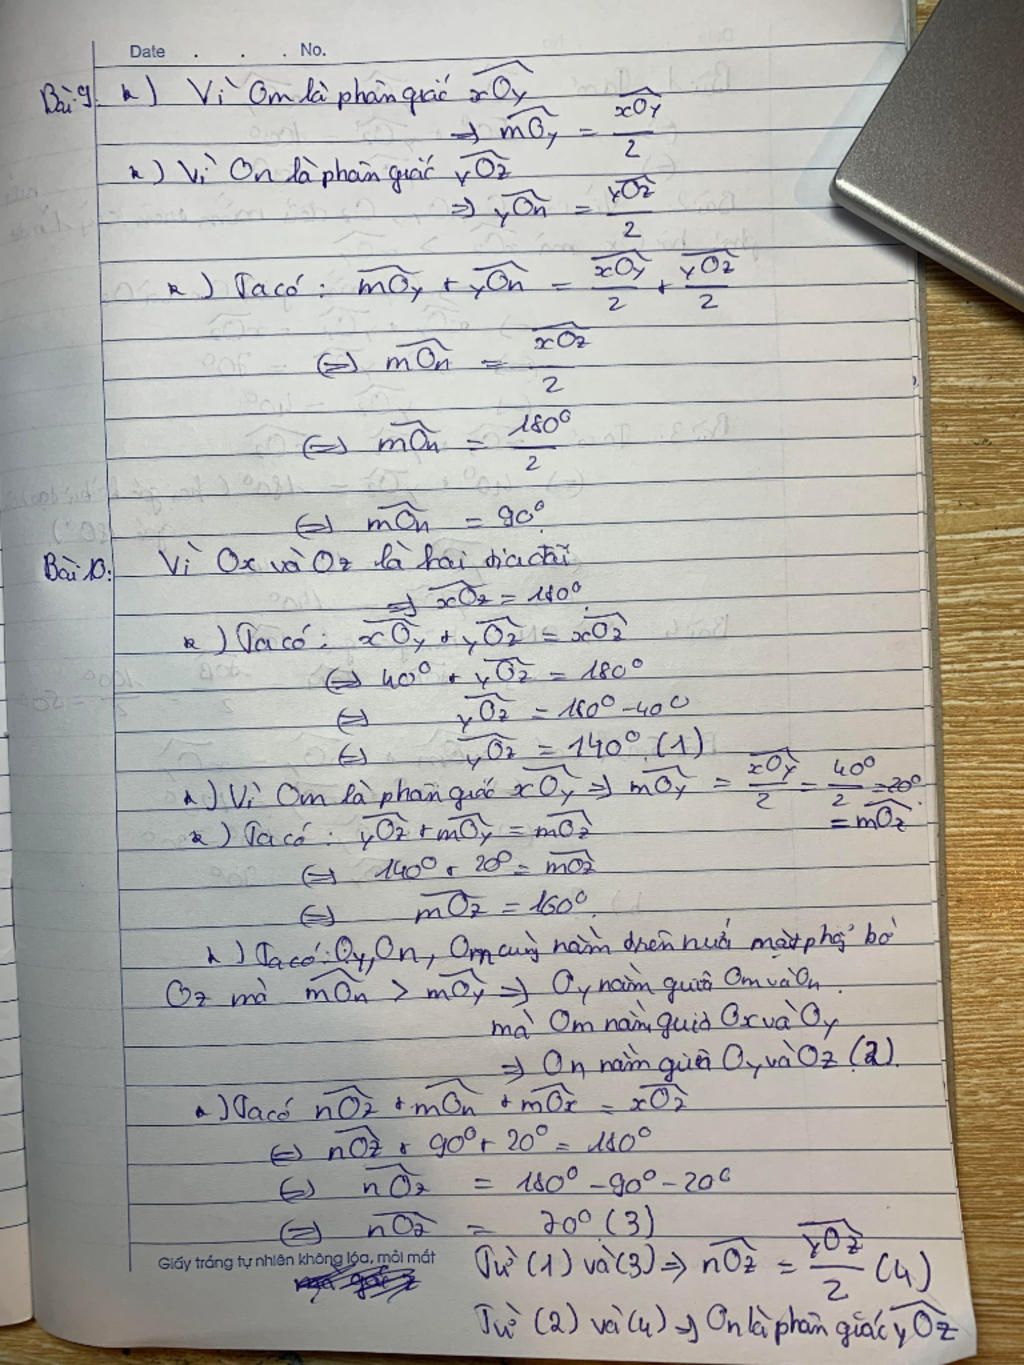 Date . . . No.
Bài 9: *) Vì Om là phân giác xOy
=> mOy = xOy/2
*) Vì On là phân giác yOz
=> yOn = yOz/2
*) Ta có: mOy + yOn = xOy/2 + yOz/2
<=> mOn = xOz/2
<=> mOn = 180°/2
<=> mOn = 90°
Bài 10: Vì Ox và Oz là hai tia đối
=> xOz = 180°
*) Ta có: xOy + yOz = xOz
<=> 40° + yOz = 180°
<=> yOz = 180° - 40°
<=> yOz = 140° (1)
*) Vì Om là phân giác xOy => mOy = xOy/2 = 40°/2 = 20°
= mOz
*) Ta có: yOz + mOy = mOz
<=> 140° + 20° = mOz
<=> mOz = 160°.
*) Ta có: Oy, On, Om cùng nằm trên nửa mặt phẳng bờ
Oz mà mOn > mOy => Oy nằm giữa Om và On.
mà Om nằm giữa Ox và Oy
=> On nằm giữa Oy và Oz (2).
*) Ta có nOz + mOn + mOx = xOz
<=> nOz + 90° + 20° = 180°
<=> nOz = 180° - 90° - 20°
<=> nOz = 70° (3)
Giấy trắng tự nhiên không lóa, mỏi mắt
Từ (1) và (3) => nOz = yOz/2 (4)
Từ (2) và (4) => On là phân giác yOz